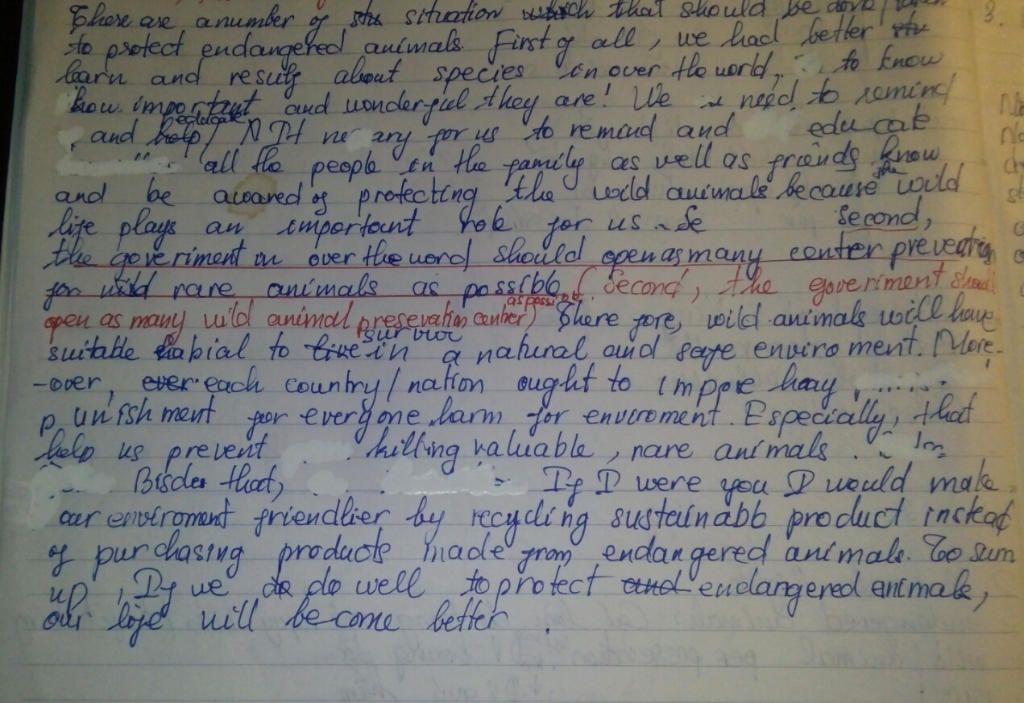 There are a number of situation which that should be done
to protect endangered animals. First of all, we had better
learn and results about species in over the world, to know
how important and wonderful they are! We need to remind
and help educate It ne ary for us to remind and educate
all the people in the family as well as friends know
and be awared of protecting the wild animals because the wild
life plays an important role for us. Se Second,
the goveriment in over the word should open as many center prevention
for wild rare animals as possible. (Second, the goveriment should
open as many wild animal presevation center as possible) There fore, wild animals will have
suitable habial to live survive in a natural and safe enviroment. More-
-over, ever each country/nation ought to impore heay
punishment for everyone harm for enviroment. Especially, that
help us prevent killing valuable, rare animals. In
Bisdes that, If I were you I would make
our enviroment friendlier by recycling sustainable product instead
of purchasing products made from endangered animals. To sum
up, If we do do well to protect and endangered animals,
our life will be come better.
3.